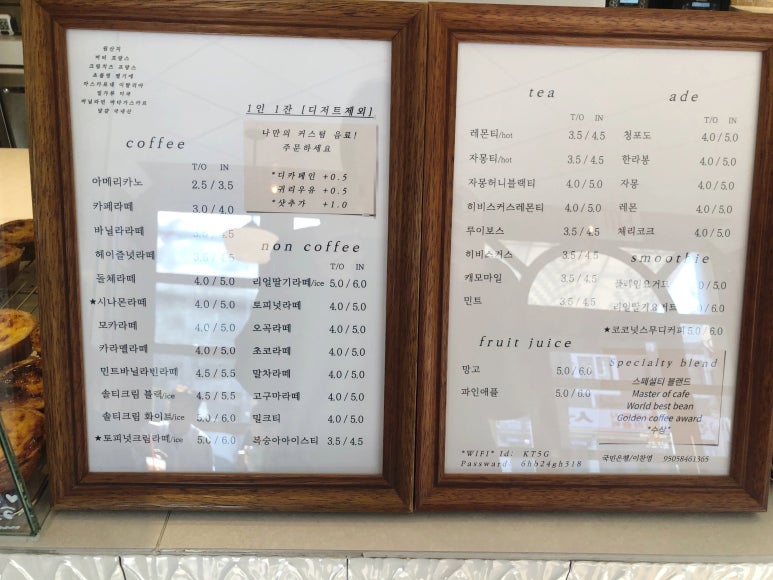 원산지
버터 프랑스
크림치즈 프랑스
초콜렛 벨기에
마스카포네 이탈리아
밀가루 미국
바닐라빈 마다가스카르
달걀 국내산
coffee
T/O IN
아메리카노 2.5 / 3.5
카페라떼 3.0 / 4.0
바닐라라떼 4.5
헤이즐넛라떼
돌체라떼 4.0 / 5.0
★시나몬라떼 4.0 / 5.0
모카라떼 4.0 / 5.0
카라멜라떼 4.0 / 5.0
민트바닐라빈라떼 4.5 / 5.5
솔티크림 블랙/ice 4.5 / 5.5
솔티크림 화이트/ice 5.0 / 6.0
★토피넛크림라떼/ice 5.0 / 6.0
1인 1잔 [디저트제외]
나만의 커스텀 음료!
주문하세요
*디카페인 +0.5
*귀리우유 +0.5
*샷추가 +1.0
non coffee
T/O IN
리얼딸기라떼/ice 5.0 / 6.0
토피넛라떼 4.0 / 5.0
오곡라떼 4.0 / 5.0
초코라떼 4.0 / 5.0
말차라떼 4.0 / 5.0
고구마라떼 4.0 / 5.0
밀크티 4.0 / 5.0
복숭아아이스티 3.5 / 4.5
tea
T/O IN
레몬티/hot 3.5 / 4.5
자몽티/hot 3.5 / 4.5
자몽허니블랙티 4.0 / 5.0
히비스커스레몬티 4.0 / 5.0
루이보스 3.5 / 4.5
히비스커스 3.5 / 4.5
캐모마일 3.5 / 4.5
민트 3.5 / 4.5
fruit juice
망고 5.0 / 6.0
파인애플 5.0 / 6.0
ade
T/O IN
청포도 4.0 / 5.0
한라봉 4.0 / 5.0
자몽 4.0 / 5.0
레몬 4.0 / 5.0
체리코크 4.0 / 5.0
smoothie
플레인요거트 / 5.0
리얼딸기요거트 / 5.0
★코코넛스무디커피 5.0 / 6.0
Specialty blend
스페셜티 블랜드
Master of cafe
World best bean
Golden coffee award
*수상*
*WIFI* Id: KT5G
Passward: 6hb24gh318
국민은행/이찬영 95058461365